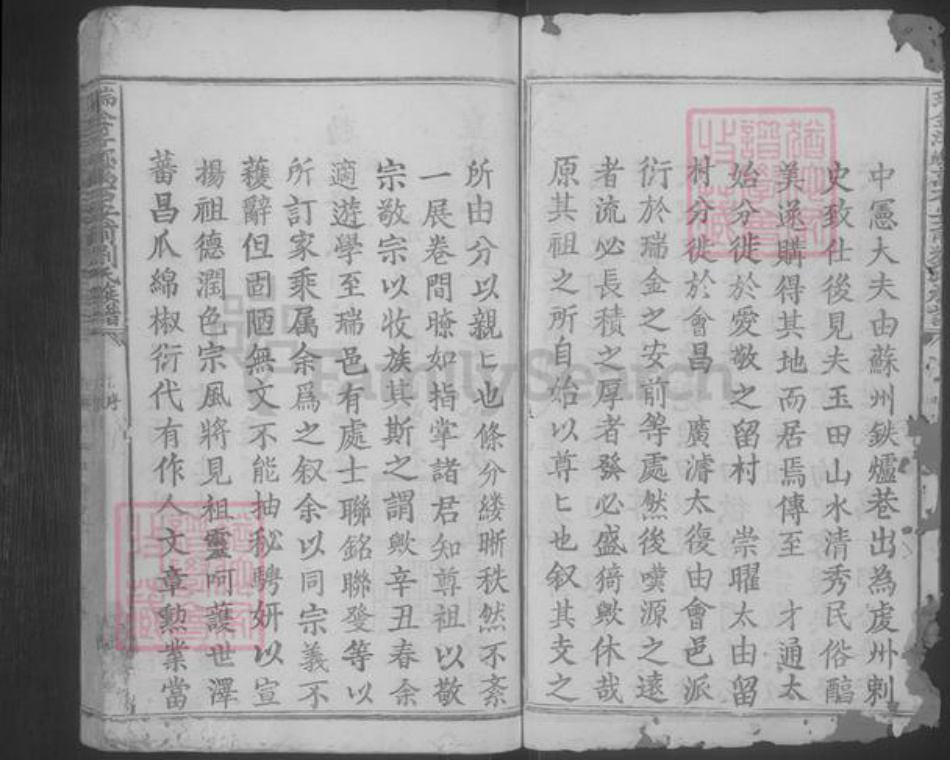 中憲大夫由蘇州鉄爐巷出為虔州刺
史致仕後見夫玉田山水清秀民俗醕
美遂購得其地而居焉傳至 才通太
始分徙於愛敬之留村 崇曜太由留
村分徙於會昌 廣濬太復由會邑派
衍於瑞金之安前等處然後嘆源之遠
者流必長積之厚者發必盛猗歟休哉
原其祖之所自始以尊匕也叙其支之
所由分以親匕也條分缕晰秩然不紊
一展卷間瞭如指掌諸君知尊祖以敬
宗敬宗以收族其斯之謂歟辛丑春余
適遊學至瑞邑有處士聯銘聯發等以
所訂家乘属余爲之叙余以同宗義不
穫辭但固陋無文不能抽秘騁妍以宣
揚祖德潤色宗風將見祖靈呵護世澤
蕃昌瓜綿椒衍代有作人文章勲業當
FamilySearch